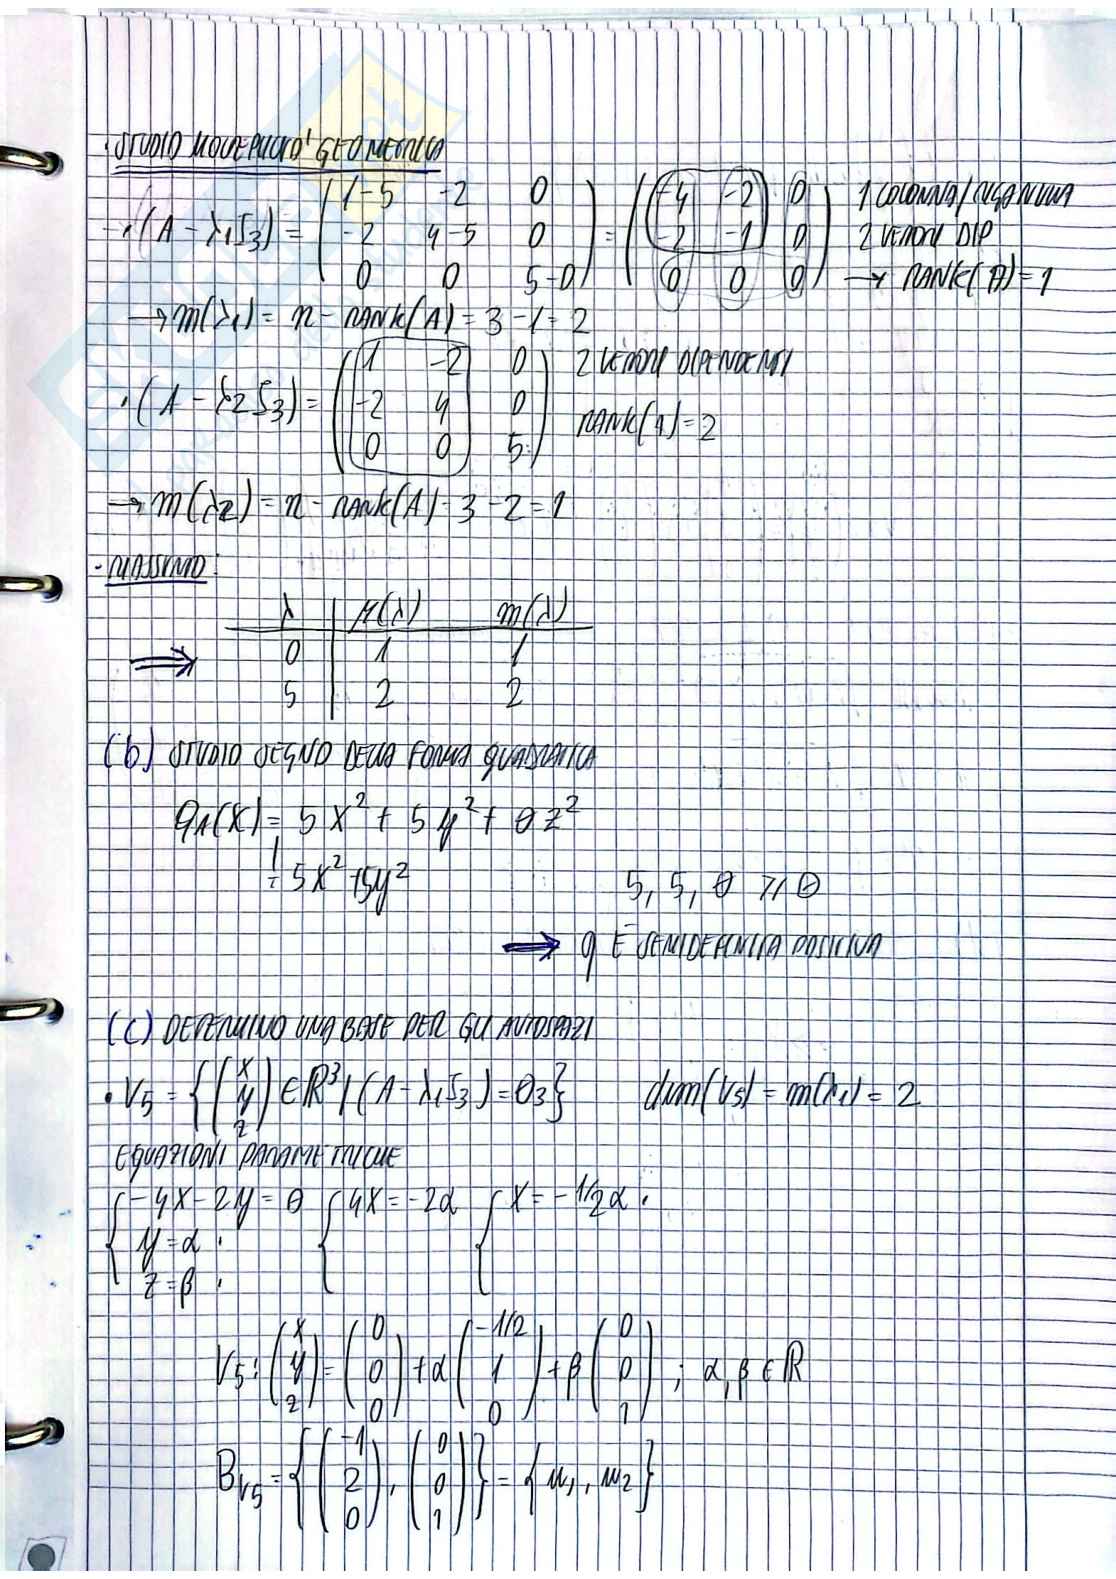 · STUDIO MOLTEPLICITA' GEOMETRICA
· (A - λ₁I₃) = ( 1-5 -2 0 / -2 4-5 0 / 0 0 5-0 ) = ( -4 -2 0 / -2 -1 0 / 0 0 0 ) 1 COLONNA/RIGA NULLA
2 VETTORI DIP
→ RANK(A) = 1
→ m(λ₁) = n - RANK(A) = 3 - 1 = 2
· (A - λ₂I₃) = ( 1 -2 0 / -2 4 0 / 0 0 5 ) 2 VETTORI DIPENDENTI
RANK(A) = 2
→ m(λ₂) = n - RANK(A) = 3 - 2 = 1
- RIASSUNTO:
λ | μ(λ) m(λ)
⇒ 0 | 1 1
5 | 2 2
(b) STUDIO SEGNO DELLA FORMA QUADRATICA
qA(X) = 5x² + 5y² + 0z²
= 5x² + 5y² 5, 5, 0 ≥ 0
⇒ q È SEMIDEFINITA POSITIVA
(c) DETERMINO UNA BASE PER GLI AUTOSPAZI
· V₅ = { (x y z) ∈ ℝ³ | (A - λ₁I₃) = 0₃ } dim(V₅) = m(λ₁) = 2
EQUAZIONI PARAMETRICHE
{ -4x - 2y = 0 { 4x = -2α { x = -1/2 α ·
y = α ·
z = β ·
V₅ : (x y z) = (0 0 0) + α (-1/2 1 0) + β (0 0 1) ; α, β ∈ ℝ
B_V₅ = { (-1 2 0), (0 0 1) } = { u₁, u₂ }